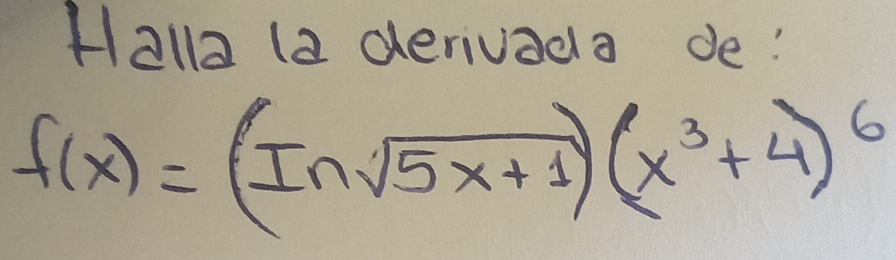 Halla la derivada de:
f(x) = (In√5x+1)(x³+4)⁶